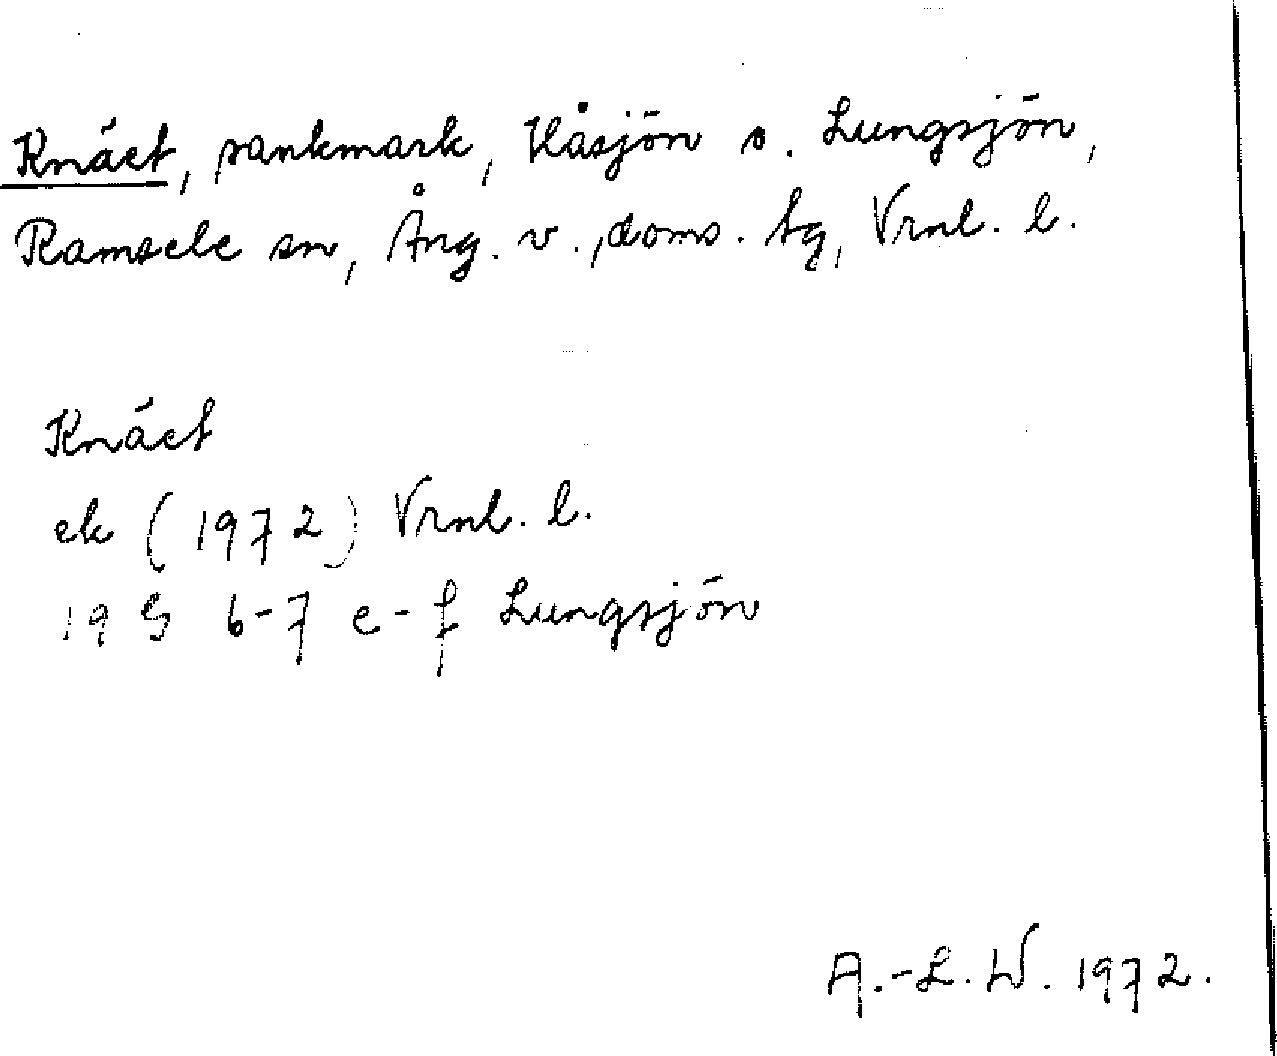 Knäet, sankmark, Håsjön s. Lungsjön,
Ramsele sn, Ång. v., doms. tg, Vrnl. l.
Knäet
ek (1972) Vrnl. l.
19 G 6-7 e-f Lungsjön
A.-L. W. 1972.